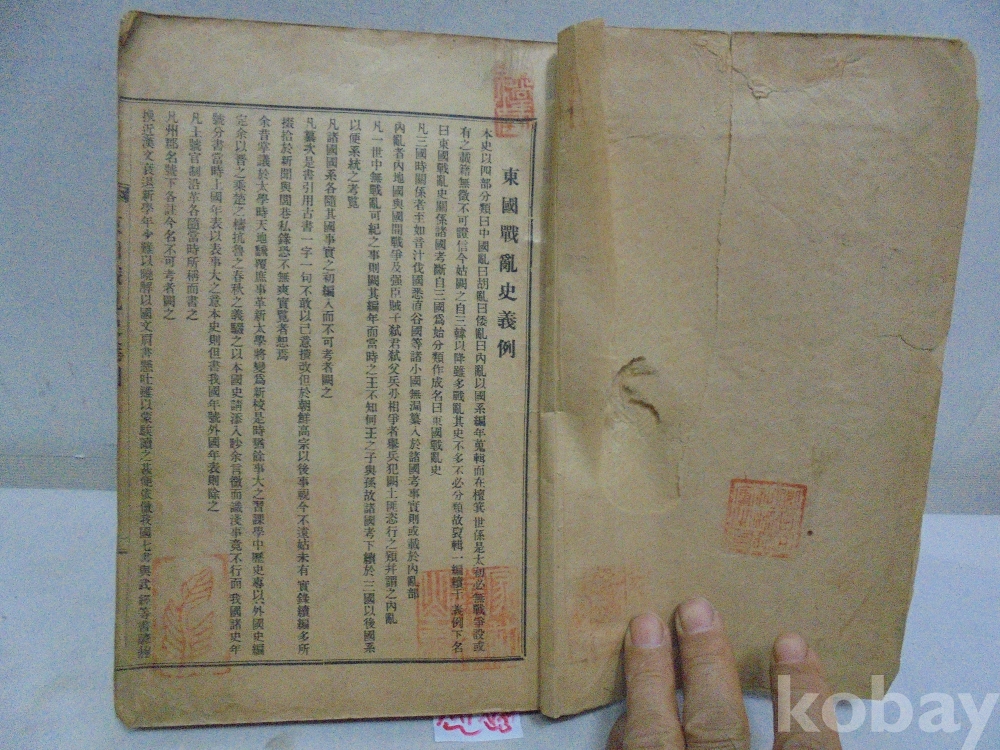 東國戰亂史義例
本史以四部分類曰中國亂曰胡亂曰倭亂曰內亂以國系編年蒐輯而在檀箕世係是太初必無戰爭設或
有之載籍無徵不可證信今姑闕之自三韓以降雖多戰亂其史不多不必分類故裒輯一編續于義例下名
曰東國戰亂史關係諸國考斷自三國爲始分類作成名曰東國戰亂史
凡三國時關係者主如音汁伐國悉直谷國等諸小國無漏纂入於諸國考事實則或載於內亂部
內亂者內地國與國間戰爭及强臣賊子弑君弑父兵刃相爭者擧兵犯闕土匪恣行之類幷謂之內亂
凡一世中無戰亂可紀之事則闕其編年而當時之王不知何王之子與孫故諸國考下續於三國以後國系
以便系統之考覽
凡諸國國系各隨其國事實之初編入而不可考者闕之
凡纂次是書引用古書一字一句不敢以己意攙改但於朝鮮高宗以後事視今不遠姑未有實錄續編多所
掇拾於新聞與閭巷私錄恐不無爽實覽者恕焉
余昔掌議於太學時天地飜覆庶事革新太學將變爲新校是時猶餘事大之習課學中歷史專以外國史編
完余以晋之乘楚之檮杌魯之春秋之義騷之以本國史請添入眇余言微而識淺事竟不行而我國諸史年
號分書當時上國年表以表事大之意本史則但書我國年號外國年表則除之
凡土號官制沿革各隨當時所稱而書之
凡州郡名號下各註今名不可考者闕之
挽近漢文衰退新學年少難以曉解以國文肩書懸吐
kobay